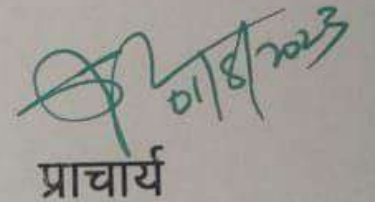 01/8/2023
प्राचार्य